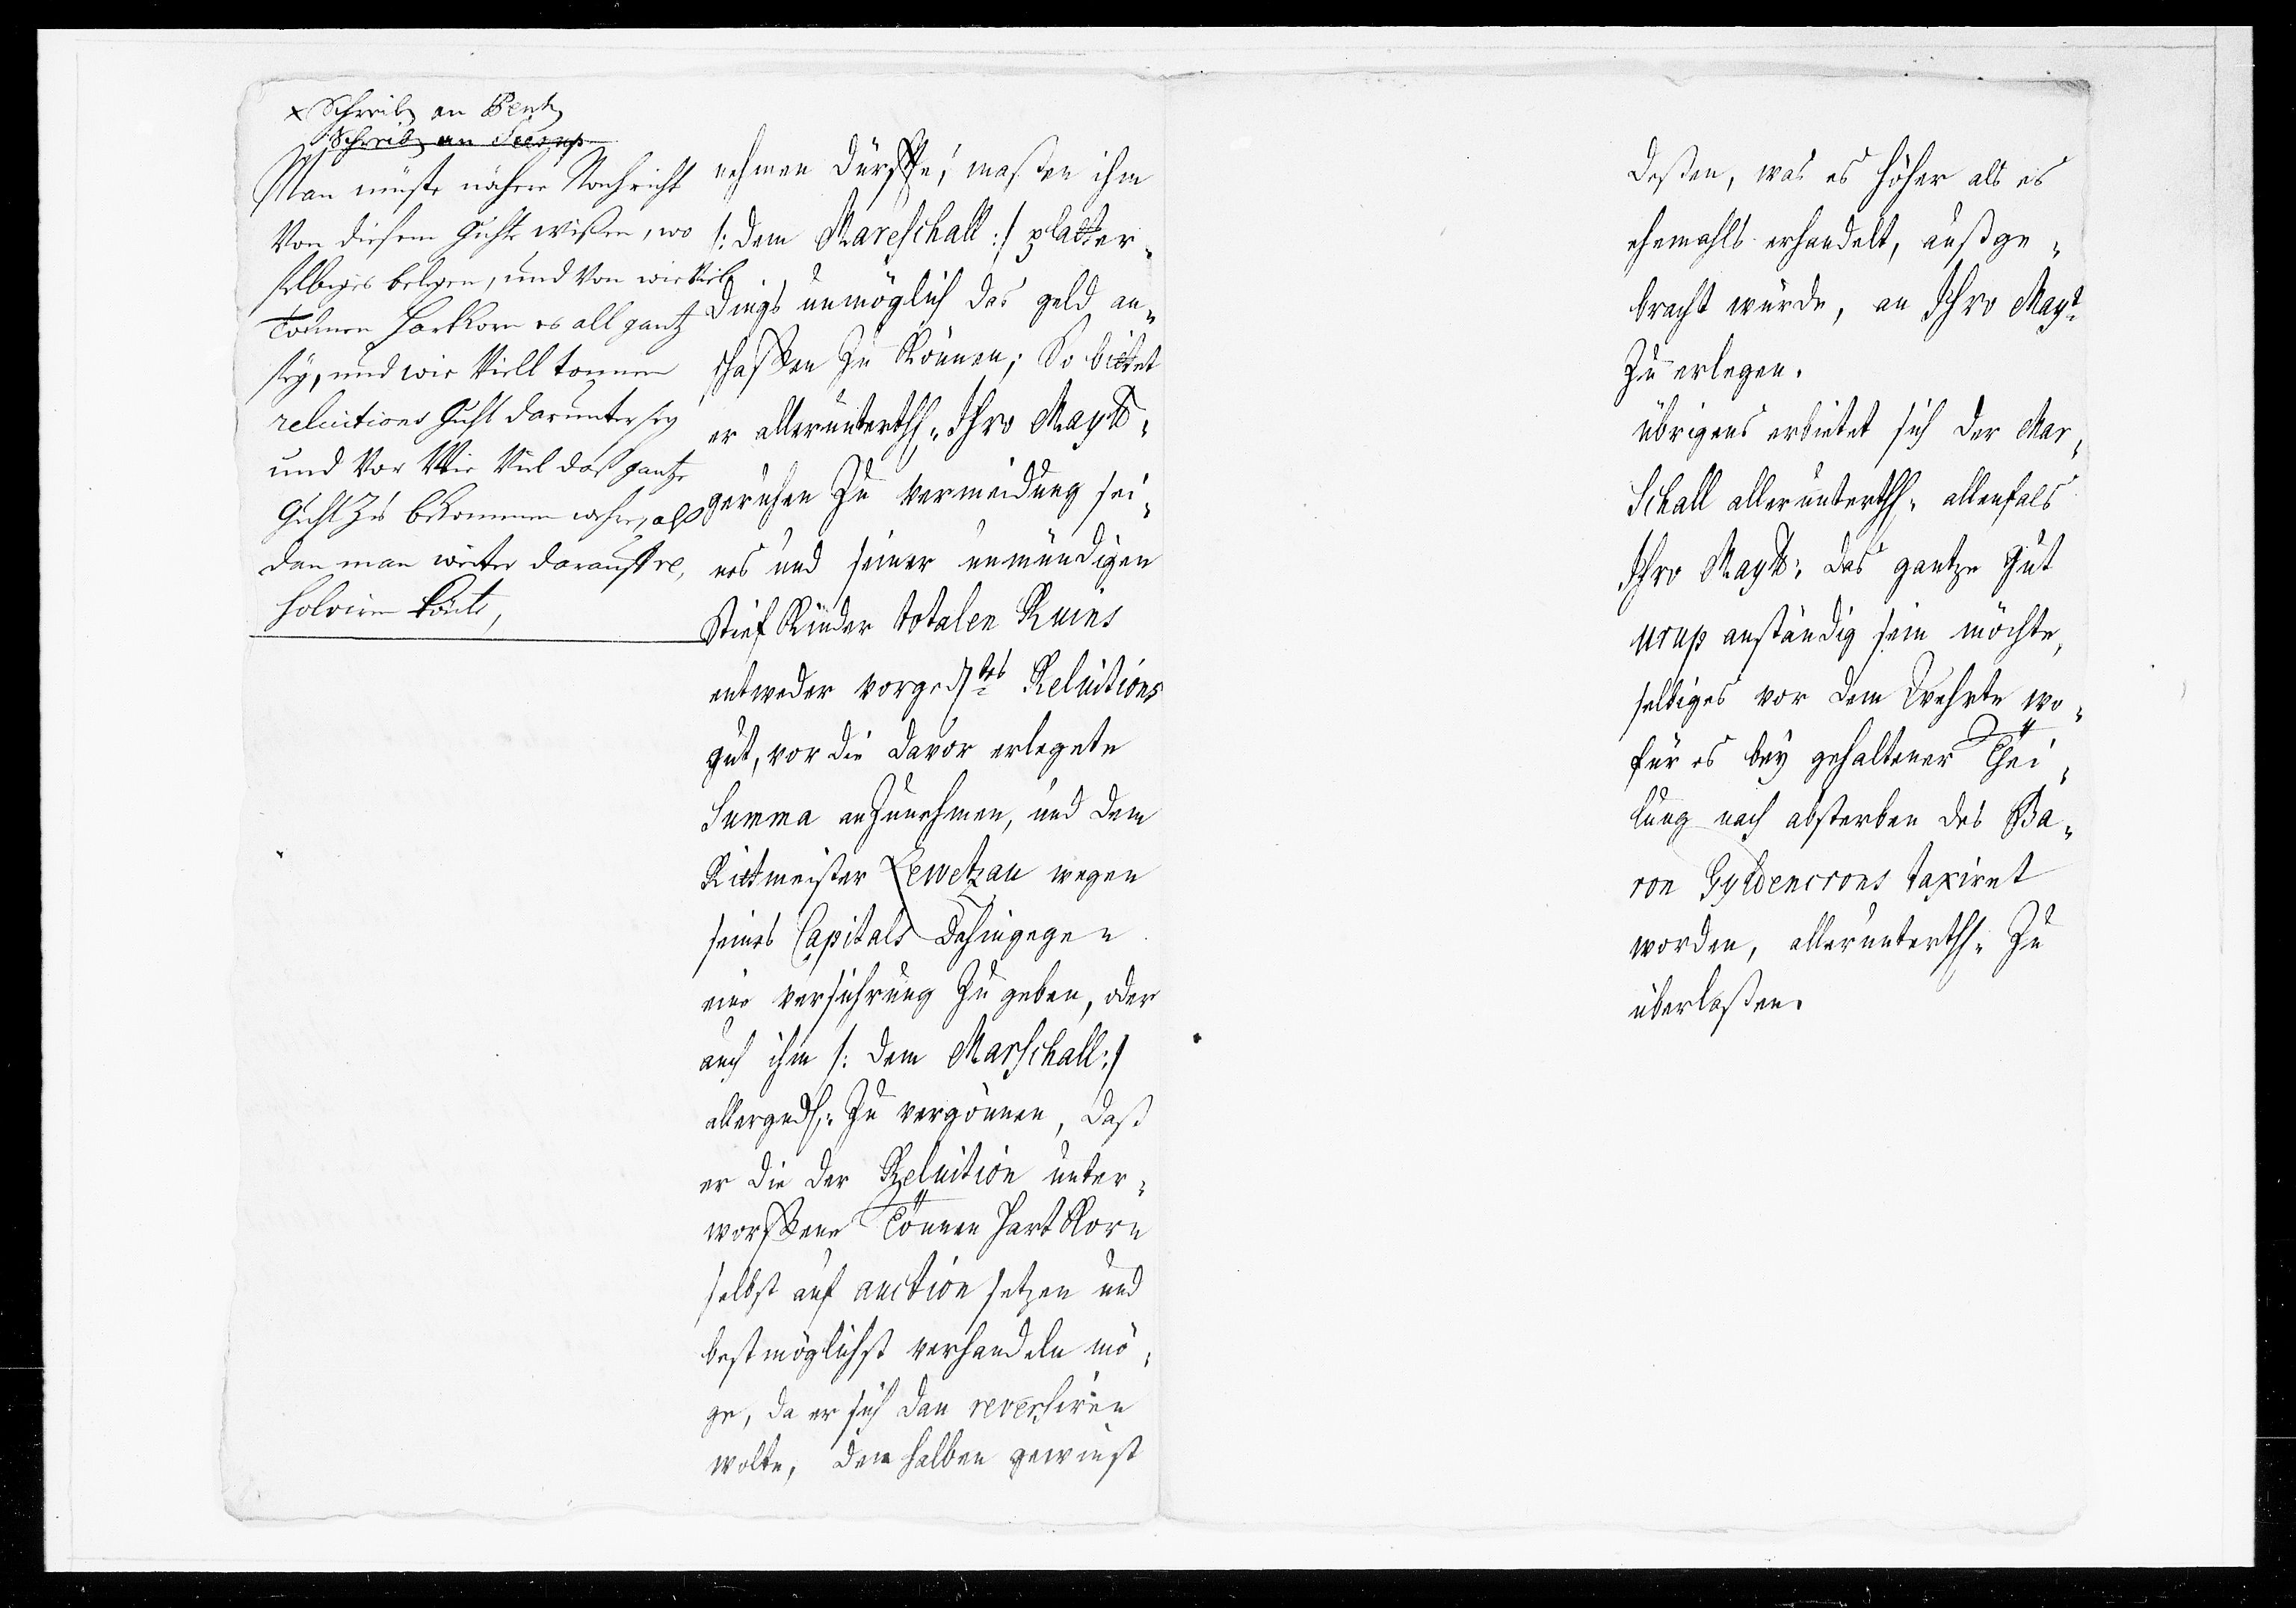 × Schreib an Bentz
Schreib an Seerup
Man müste nähere Nachricht
Von diesem Guhte wißen, wo
selbiges belegen, und Von wie Viel
Tonnen Hartkorn es all gantz
sey, und wie Viell tonnen
reluitions Guht darunter sey
und Vor Wie Viel daß gantze
Guht zu bekommen wehre, alß
dan man weiter darauff re,
solviren könte,
nehmen dürffe, maßen ihm
/: dem Mareschall :/ platter-
dings unmöglich das geld an-
schaffen zu können; So bittet
er allerunterth. Ihro Maytt.
geruhen zu vermeidung sei-
nes und seiner unmündigen
Stief Kinder totalen Ruins
entweder vorgedtes Reluitions
gut, vor die davor erlegete
Summa anzunehmen, und dem
Ritmeister Lewetzau wegen
seines Capitals dahingegen
eine versicherung zu geben, oder
auch ihm /: dem Marschall :/
allergndst. zu vergönnen, daß
er die der Reluition unter-
worffene Tonnen Hart Korn
selbst auf auction setzen und
bestmöglichst verhandeln mö-
ge, da er sich dan reversiren
wolte, den halben gewinst
deßen, was es höher als es
ehemahls erhandelt, außge-
bracht würde, an Ihro Maytt
zu erlegen.
übrigens erbietet sich der Mar-
schall allerunterth. allenfals
Ihro Maytt: das gantze Gut
Urup anständig sein möchte,
selbiges vor dem Wehrte wo-
für es bey gehaltener Thei-
lung nach absterben des Ba-
ron Gyldencrons taxiret
worden, allerunterth. zu
überlaßen.